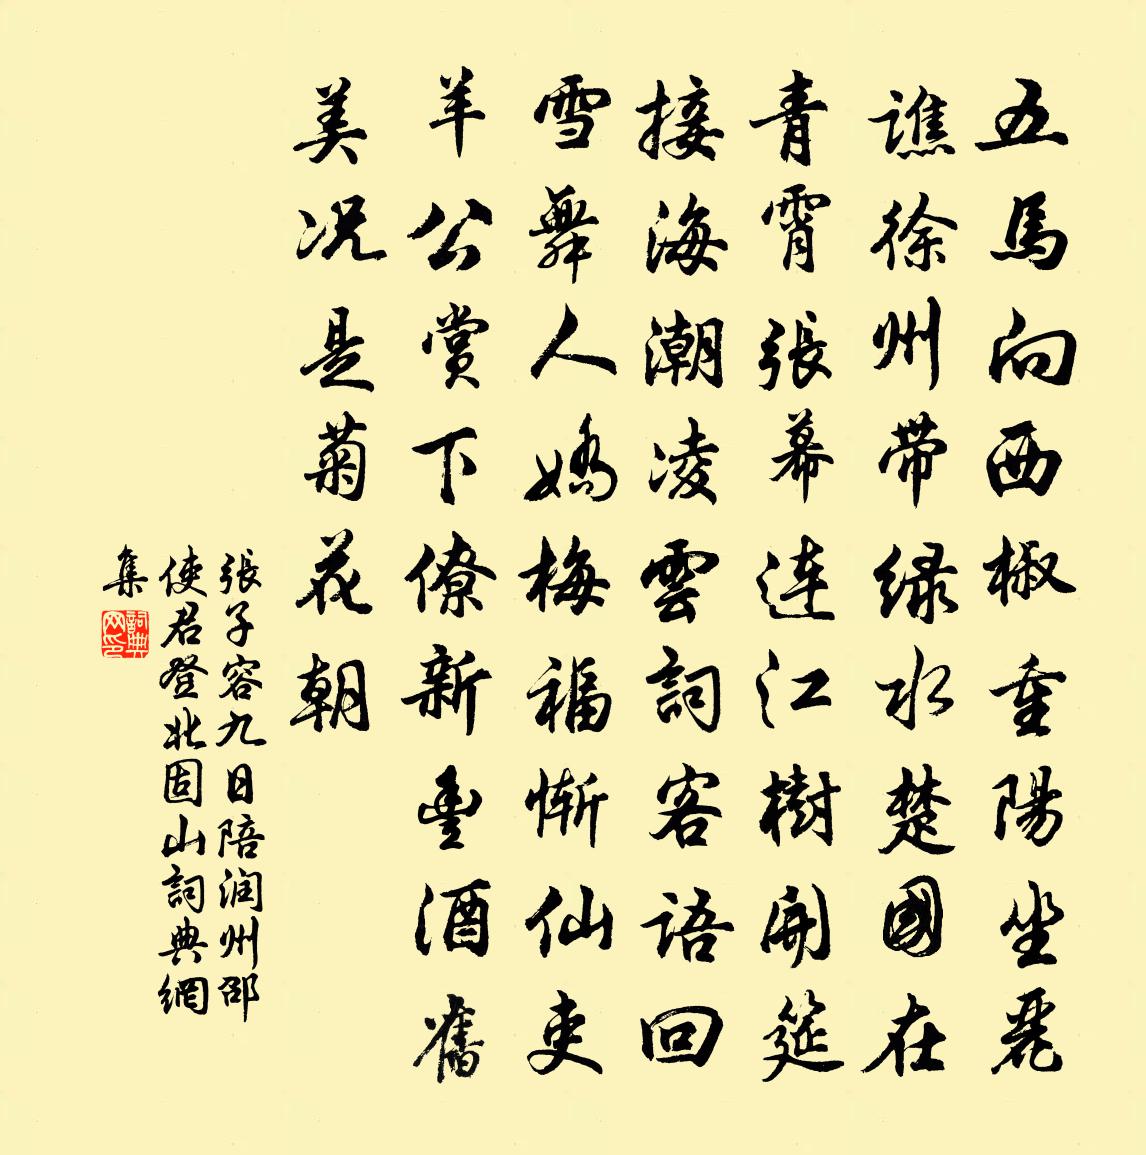 五馬向西椒重陽坐麗
譙徐州带绿水楚國在
青霄張幕連江樹開筵
接海潮凌雲詞客語回
雪舞人嬌梅福慚仙吏
羊公賞下僚新豊酒舊
美况是菊花朝
張子容九日陪润州邵
使君登北固山詞典網
集
詞典
网印